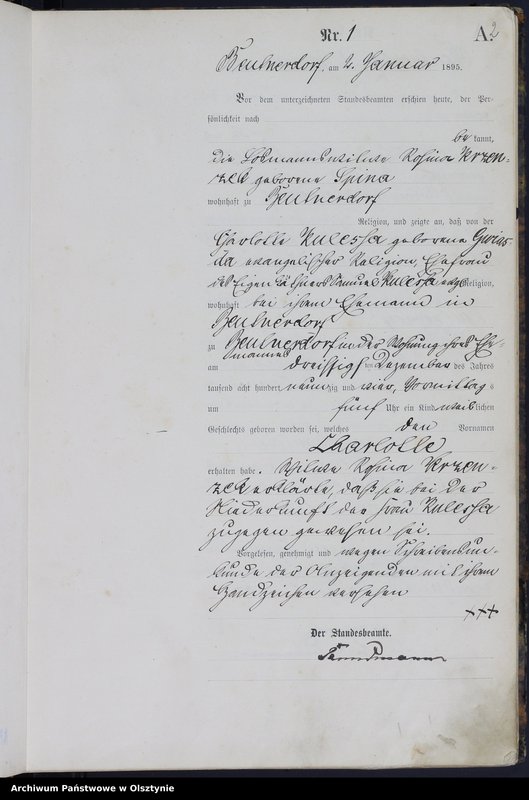 Nr. 1
A.
2
Beutnerdorf, am 2. Januar 1895.
Vor dem unterzeichneten Standesbeamten erschien heute, der Per-
sönlichkeit nach
be kannt,
die Losmannswitwe Rosina
geborene Spina
wohnhaft zu Beutnerdorf
Religion, und zeigte an, daß von der
Charlotte Kulessa geborene
evangelischer Religion, Ehefrau
des Eigenkäthners Samuel Kulessa evgl. Religion,
wohnhaft bei ihrem Ehemann in
Beutnerdorf
zu Beutnerdorf in der Wohnung ihres Ehe-
mannes
am dreißigsten Dezember des Jahres
tausend acht hundert neunzig und vier, Vormittags
um fünf Uhr ein Kind weiblichen
Geschlechts geboren worden sei, welches den Vornamen
Charlotte
erhalten habe. Witwe Rosina
erklärte, daß sie bei der
Niederkunft der Frau Kulessa
zugegen gewesen sei.
Vorgelesen, genehmigt und wegen Schreibensun-
kunde der Anzeigenden mit ihrem
Handzeichen versehen
+++
Der Standesbeamte.
Archiwum Państwowe w Olsztynie